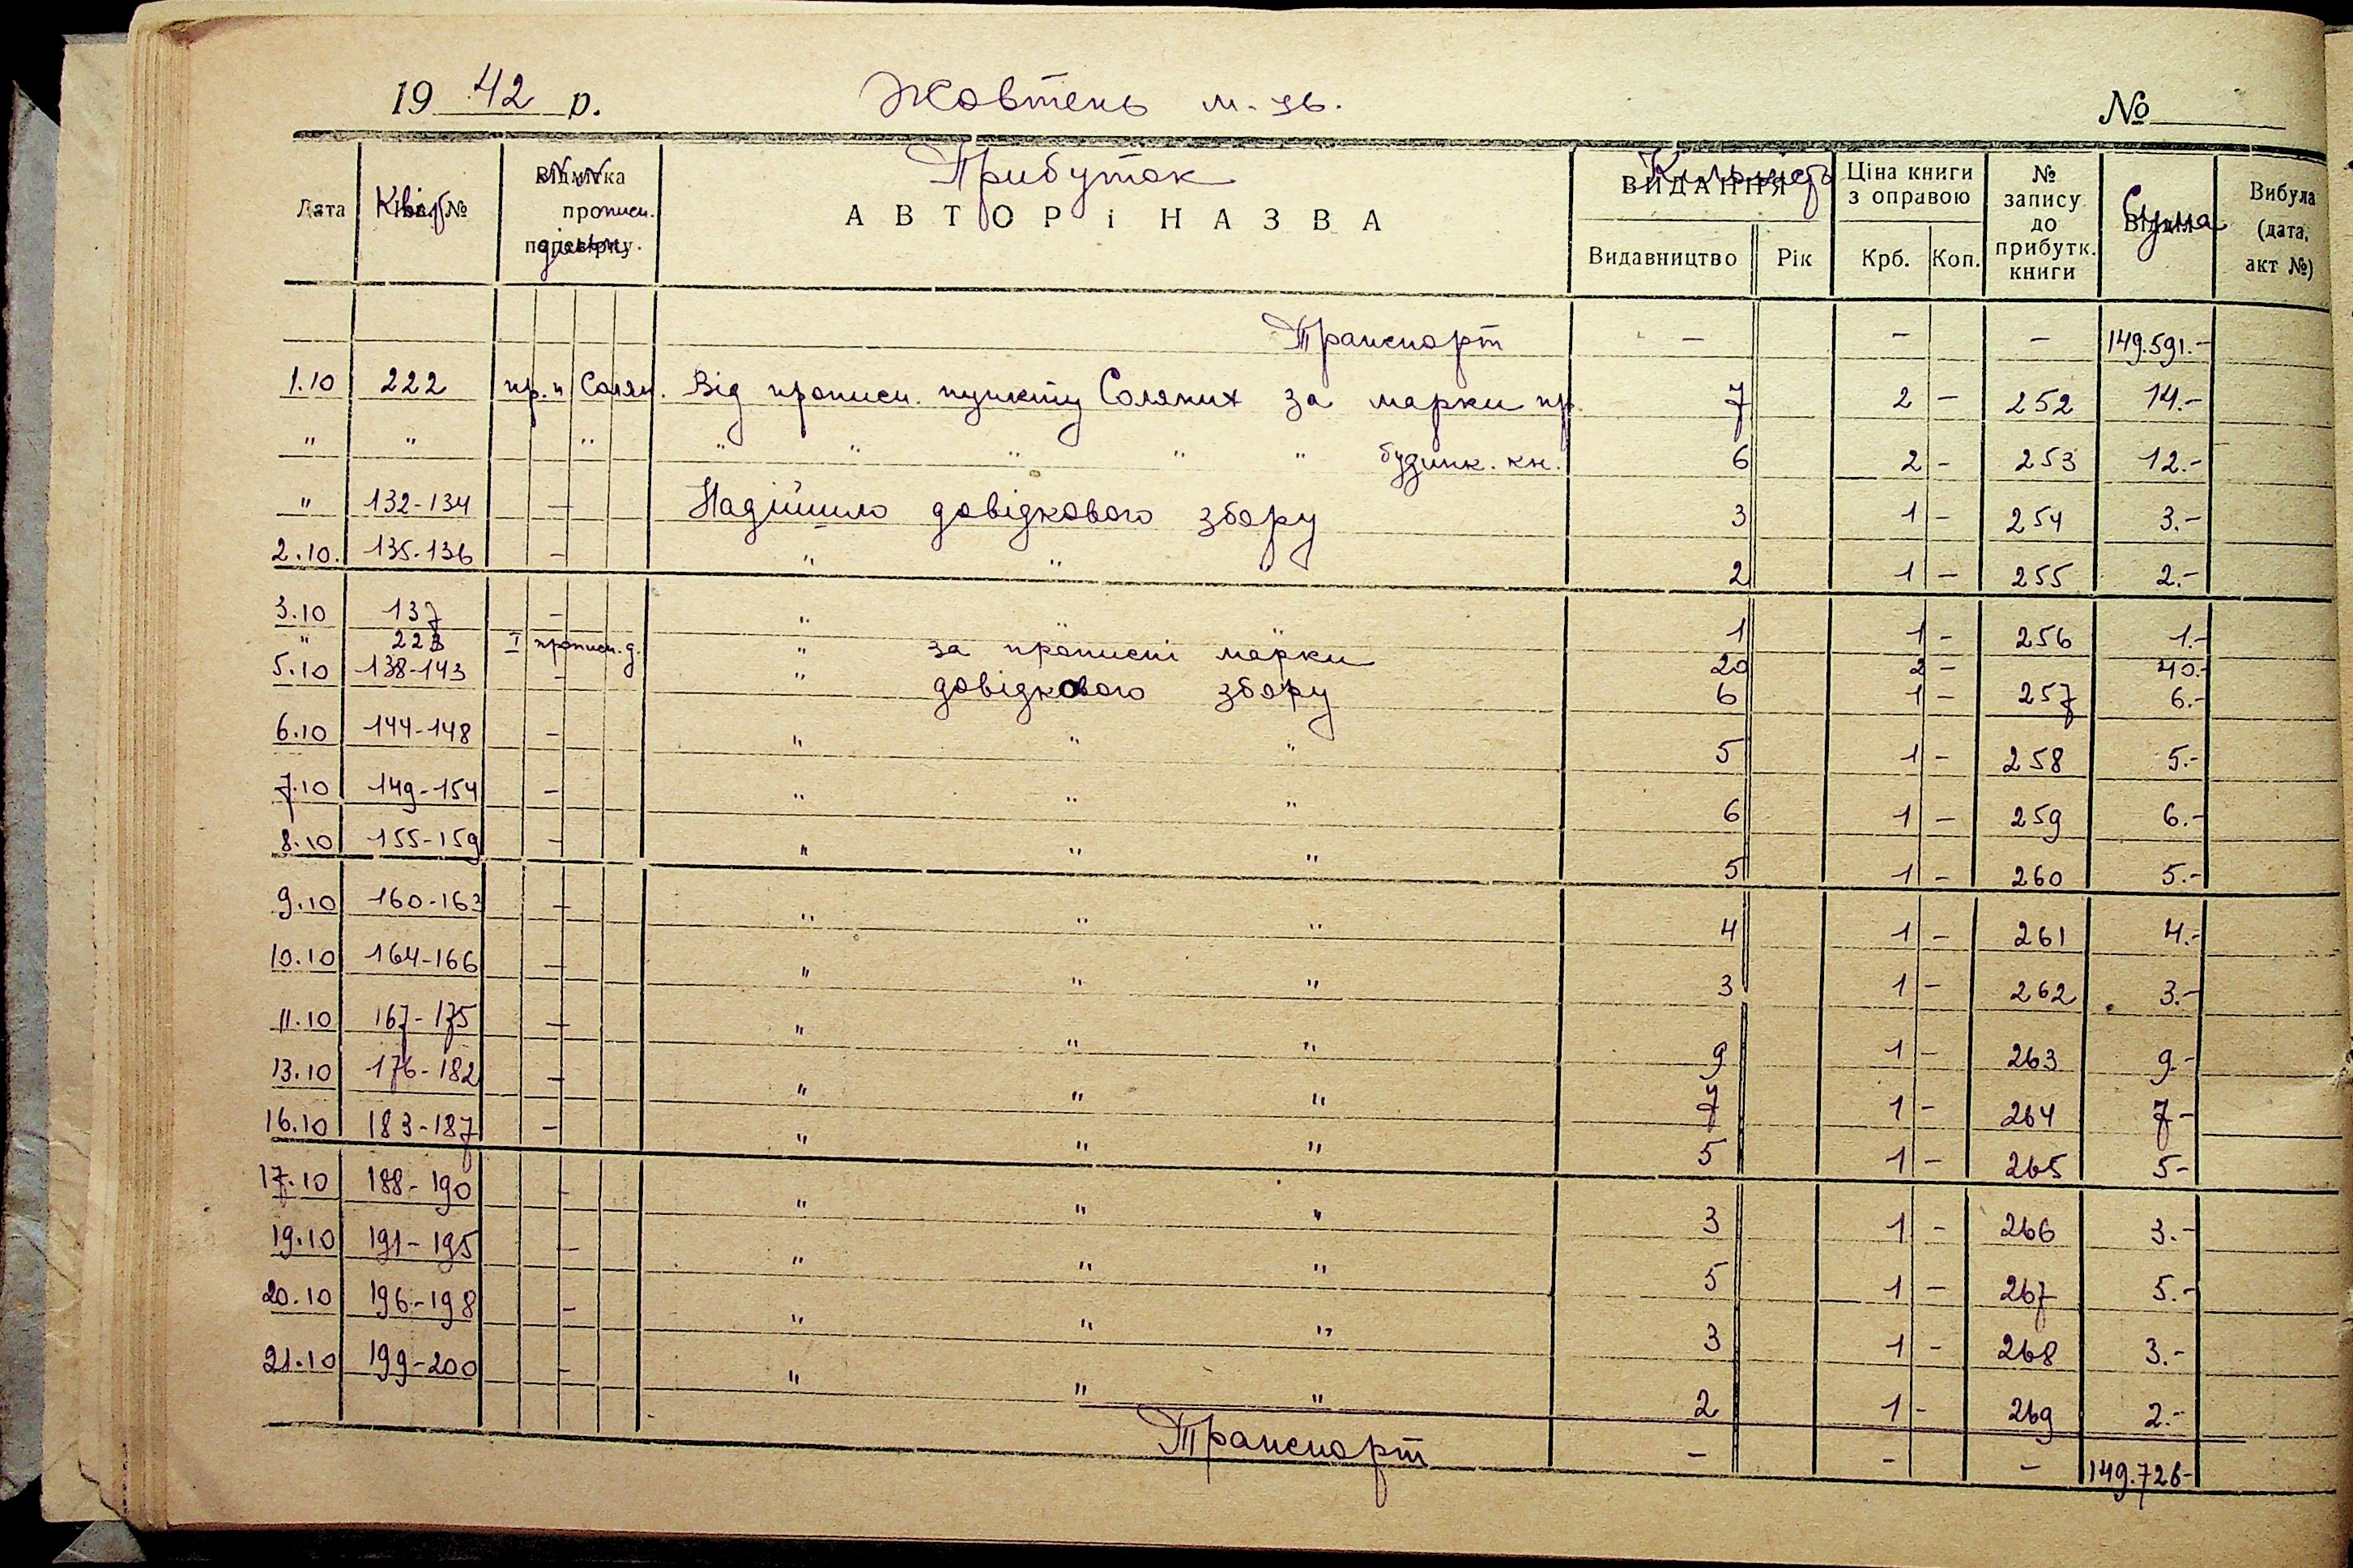 19 42 р. Жовтень м-ць. №
Дата Квіт. № Відмітка про перевірку № № прописн. дільн. АВТОР і НАЗВА Прибуток ВИДАННЯ Кількість Ціна книги з оправою № запису до прибутк. книги Відділ Сума Вибула (дата, акт №)
Видавництво Рік Крб. Коп.
Транспорт — — — 149.591.-
1.10 222 пр. п Солян. Від прописн. пункту Соляних за марки пр. 7 2 — 252 14.-
" " " " " " " " будинк. кн. 6 2 - 253 12.-
" 132-134 — Надійшло довідкового збору 3 1 - 254 3.-
2.10. 135-136 - " " " 2 1 - 255 2.-
3.10 137 - " " " 1 1 - 256 1.-
" 223 I прописн. д. " за прописні марки 20 2 - 40.-
5.10 138-143 - " довідкового збору 6 1 - 257 6.-
6.10 144-148 - " " " 5 1 - 258 5.-
7.10 149-154 - " " " 6 1 - 259 6.-
8.10 155-159 - " " " 5 1 - 260 5.-
9.10 160-163 - " " " 4 1 - 261 4.-
10.10 164-166 - " " " 3 1 - 262 3.-
11.10 167-175 - " " " 9 1 - 263 9.-
13.10 176-182 - " " " 7 1 - 264 7-
16.10 183-187 - " " " 5 1 - 265 5-
17.10 188-190 - " " " 3 1 - 266 3.-
19.10 191-195 - " " " 5 1 - 267 5.-
20.10 196-198 - " " " 3 1 - 268 3.-
21.10 199-200 - " " " 2 1 - 269 2.-
Транспорт - - - 149.726-